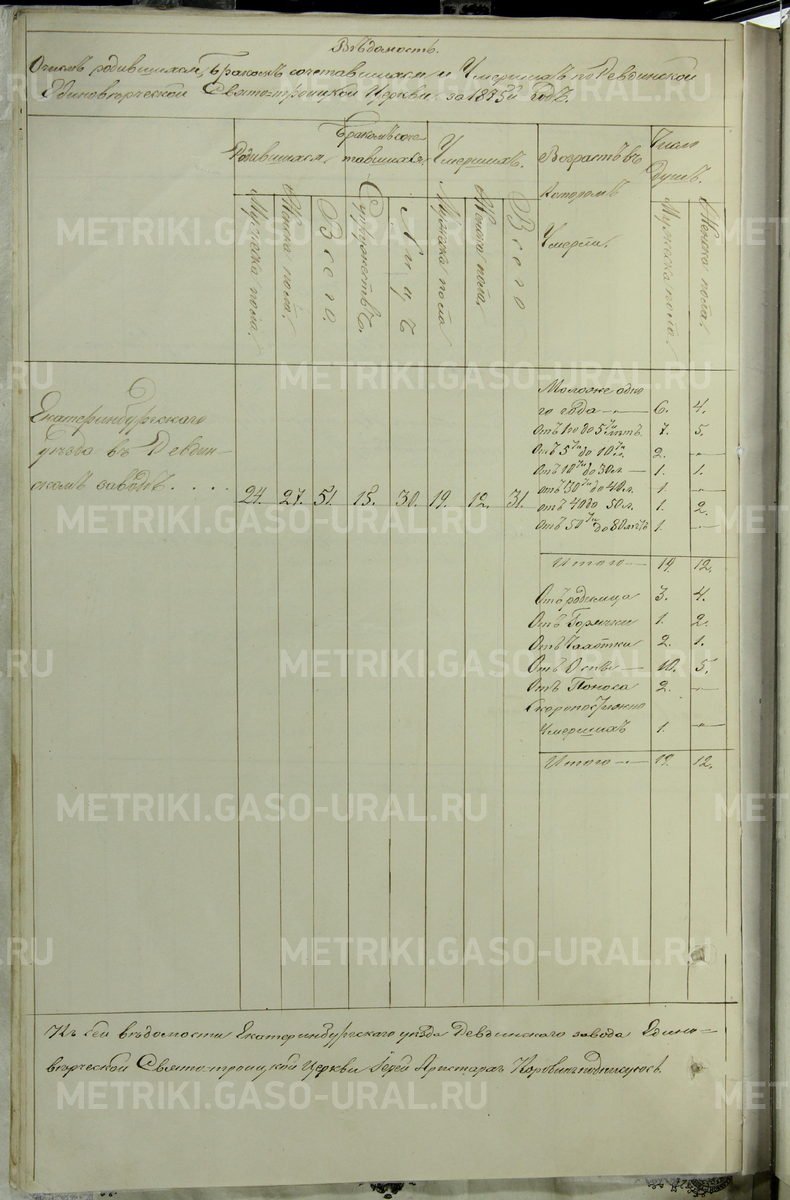 Вѣдомость.
О числѣ родившихся, бракомъ сочетавшихся и Умершихъ по Ревдинской
Единовѣрческой Свято-троицкой Церкви за 1835й годъ.
Родившихся.
Бракомъ соче-
тавшихся.
Умершихъ.
Возрастъ въ
которомъ
Умерли.
Число
Душъ.
Мужеска пола.
Женска пола.
Всего.
Супружествъ.
Лицъ
Мужеска пола
Женска пола.
Всего
Мужеска пола.
Женска пола.
Екатеринбургскаго
уѣзда въ Ревдин-
скомъ заводѣ. . . . 24. 27. 51. 15. 30. 19. 12. 31.
Моложе одно
го года — 6. 4.
Отъ 1го до 5ти лѣтъ. 7. 5.
Отъ 5ти до 10ти л. 2. —
Отъ 10ти до 30 л. — 1. 1.
отъ 30ти до 40 л. 1. —
отъ 40 до 50 л. 1. 2.
Отъ 50ти до 80 лѣтъ 1. —
Итого — 19. 12.
Отъ родимца 3. 4.
Отъ Горячки 1. 2.
Отъ Чахотки 2. 1.
Отъ Оспы — 10. 5.
Отъ Поноса 2. —
Скоропостижно
Умершихъ 1. —
Итого — 19. 12.
Къ сей вѣдомости Екатеринбургскаго уѣзда Ревдинскаго завода Едино-
вѣрческой Свято-троицкой Церкви Іерей Аристархъ Коровинъ подписуюсь.
METRIKI.GASO-URAL.RU